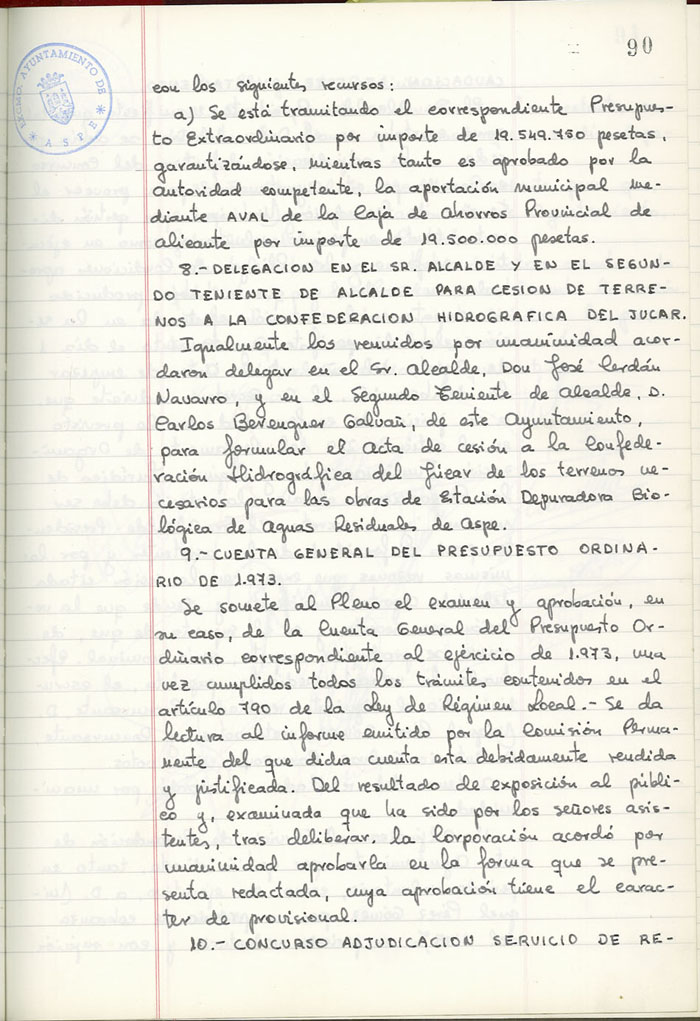 90
EXCMO. AYUNTAMIENTO DE
* ASPE *
con los siguientes recursos:
a) Se está tramitando el correspondiente Presupues-
to Extraordinario por importe de 19.549.750 pesetas,
garantizándose, mientras tanto es aprobado por la
autoridad competente, la aportación municipal me-
diante AVAL de la Caja de Ahorros Provincial de
Alicante por importe de 19.500.000 pesetas.
8.- DELEGACION EN EL SR. ALCALDE Y EN EL SEGUN-
DO TENIENTE DE ALCALDE PARA CESION DE TERRE-
NOS A LA CONFEDERACION HIDROGRAFICA DEL JUCAR.
Igualmente los reunidos por unanimidad acor-
daron delegar en el Sr. Alcalde, Don José Cerdán
Navarro, y en el Segundo Teniente de Alcalde, D.
Carlos Berenguer Galvañ, de este Ayuntamiento,
para formular el Acta de cesión a la Confede-
ración Hidrográfica del Júcar de los terrenos ne-
cesarios para las obras de Estación Depuradora Bio-
lógica de Aguas Residuales de Aspe.
9.- CUENTA GENERAL DEL PRESUPUESTO ORDINA-
RIO DE 1.973.
Se somete al Pleno el examen y aprobación, en
su caso, de la Cuenta General del Presupuesto Or-
dinario correspondiente al ejercicio de 1.973, una
vez cumplidos todos los trámites contenidos en el
artículo 790 de la Ley de Régimen Local.- Se da
lectura al informe emitido por la Comisión Perma-
nente del que dicha cuenta esta debidamente rendida
y justificada. Del resultado de exposición al públi-
co y, examinada que ha sido por los señores asis-
tentes, tras deliberar, la Corporación acordó por
unanimidad aprobarla en la forma que se pre-
senta redactada, cuya aprobación tiene el carac-
ter de provisional.
10.- CONCURSO ADJUDICACION SERVICIO DE RE-